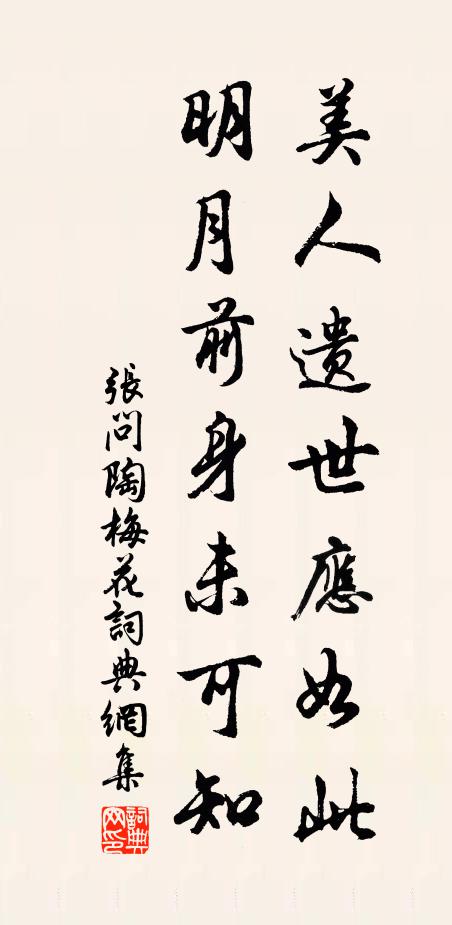 美人遺世應如此
明月前身未可知
張問陶梅花詞典網集
詞典網印